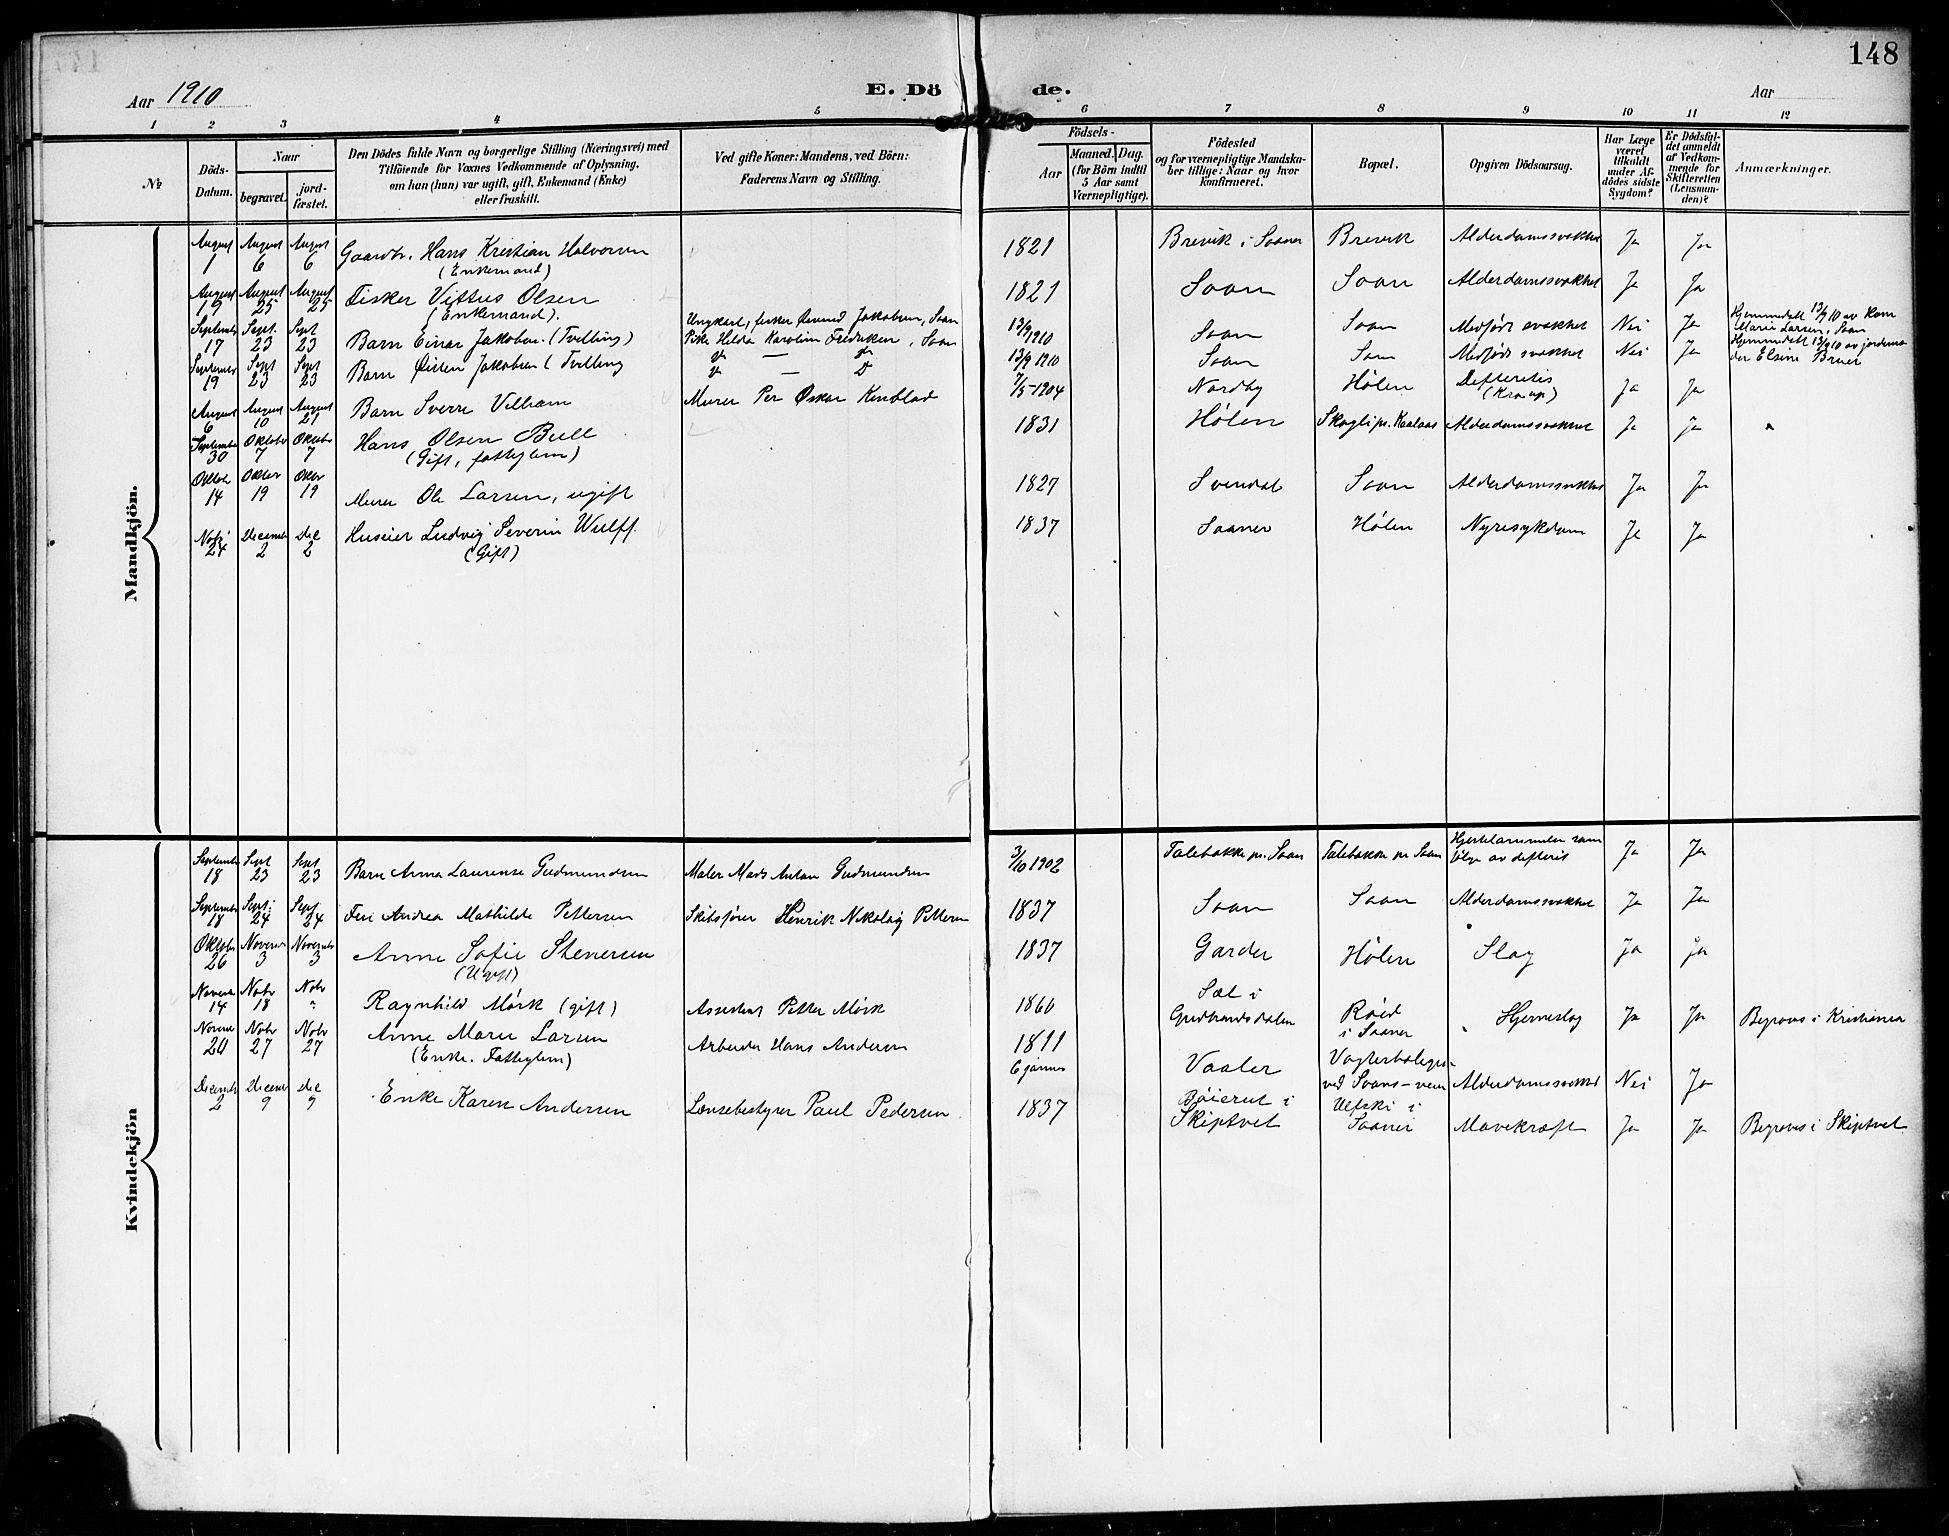 148
Aar 1910
E. Döde.
Aar
1 2 3 4 5 6 7 8 9 10 11 12
№
Döds-Datum.
Naar
begravet.
jord-fæstet.
Den Dödes fulde Navn og borgerlige Stilling (Næringsvei) med
Tilföiende for Voxnes Vedkommende af Oplysning,
om han (hun) var ugift, gift, Enkemand (Enke)
eller fraskilt.
Ved gifte Koner: Mandens, ved Börn:
Faderens Navn og Stilling.
Födsels-
Aar
Maaned. Dag.
(for Börn indtil
5 Aar samt
Værnepligtige).
Födested
og for værnepligtige Mandska-
ber tillige: Naar og hvor
konfirmeret.
Bopæl.
Opgiven Dödsaarsag.
Har Læge
været
tilkaldt
under Af-
dödes sidste
Sygdom?
Er Dödsfal-
det anmeldt
af Vedkom-
mende for
Skifteretten
(Lensman-
den)?
Anmærkninger.
Mandkjön.
August 1 August 6 August 6 Gaardbr. Hans Kristian Halvorsen (Enkemand) 1821 Brevik i Saaner Brevik Alderdomssvakhet Ja Ja
August 19 August 25 August 25 Fisker Vittus Olsen (Enkemand). 1821 Soon Soon Alderdomssvakhet Ja Ja
September 17 Sept. 23 Sept 23 Barn Einar Jakobsen. (Tvilling) Ungkarl, fisker Jakobsen, Soon Pike Hilda Karoline Fredriksen, Soon 13/9 1910 Soon Soon Medfødt svakhet Nei Ja Hjemmedøbt 13/9 10 av Kone Marie Larsen, Soon
September 19 Sept 23 Sept 23 Barn Øisten Jakobsen (Tvilling do — do do — do 13/9 1910 Soon Soon Medfødt svakhet Nei Ja Hjemmedøbt 13/9 10 av jordemoder Elsine Bruer
August 6 August 10 August 21 Barn Sverre Vilham Murer Per Oskar Kinblad 7/5-1904 Nordby Hølen Defteritis (Kroup) Ja Ja
September 30 Oktober 7 Oktober 7 Hans Olsen Bull (Gift, fattiglem) 1831 Hølen Skogli pr. Kaalaas Alderdomssvakhet Ja Ja
Oktob 14 Oktber 19 Oktr 19 Murer Ole Larsen, ugift 1827 Svendal Soon Alderdomssvakhet Ja Ja
Novbr 24 December 2 Dec 2 Huseier Ludvig Severin Wulff. (Gift) 1837 Saaner Hølen Nyresykdom Ja Ja
Kvindekjön
September 18 Sept 23 Sept 23 Barn Anna Laurense Gudmundsen Maler Mads Anton Gudmundsen 3/10 1902 Labakke pr. Soon Labakke pr Soon Hjertelammelse som følge av defterit Ja Ja
September 18 Sept: 24 Sept 24 Fru Andrea Mathilde Pettersen Skibsfører Henrik Nikolay Pettersen 1837 Soon Soon Alderdomssvakhet Ja Ja
Oktober 26 November 3 November 3 Anne Sofie Stenersen (Ugift) 1837 Garder Hølen Slag Ja Ja
November 14 Nobr 18 Nobr " Ragnhild Mørk (gift) Assistent Petter Mørk 1860 Sel i Gudbrandsdalen Røed i Saaner Hjerneslag Ja Ja Begraves i Kristiania
November 20 Nobr 27 Nobr 27 Anne Marie Larsen (Enke. Fattiglem) Arbeider Hans Andersen 1811 6 januar Vaaler Vogterboligen ved Soons-veien Alderdomssvakhet Nei Ja
December 2 December 9 Dec 9 Enke Karen Andersen Lensebestyrer Paul Pedersen 1837 Bøierud i Skiptvet i Saaner Mavekræft Ja Ja Begraves i Skiptvet